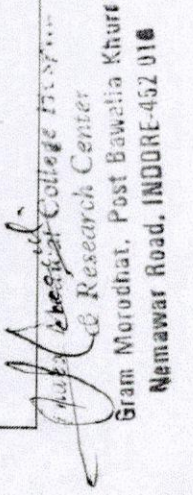 College
& Research Center
Gram Morodhat, Post Bawalia Khurd
Nemawar Road, INDORE-452 016